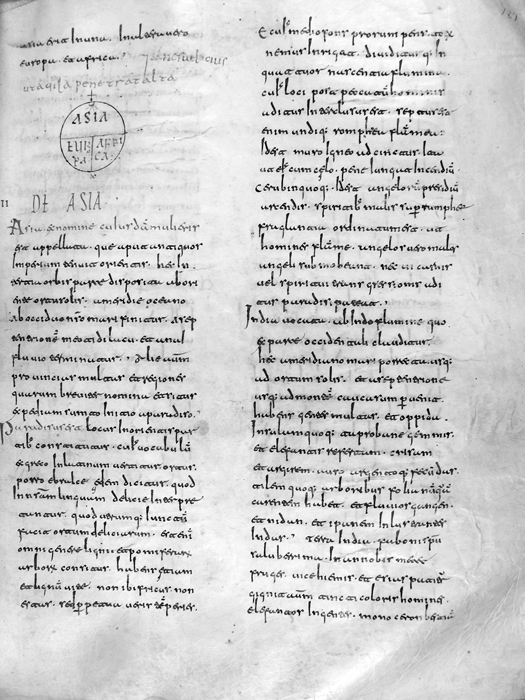 asia erit in una. In alia uero
europa et africa.
ASIA
EUROPA AFRICA
II DE ASIA
Asia ex nomine cuiusdam mulieris
est appellata. que aput antiquos
Imperium tenuit orientis. hec In
tertia orbis parte disposita ab ori
ente ortu solis. a meridie oceano
ab occiduo nostro mari finitur. a sep
tentrione meotidi lacu. et tanai
fluuio terminatur.
prouincias multas et regiones
quarum breuiter nomina et situs
expediam sumto Initio a paradiso.
Paradisus est locus In orientis par
tibus constitutus. cuius uocabulum
ex greco In latinum uertitur ortus.
porro ebraice eden dicitur. quod
In nostram linguam delicie Interpre
tantur. quod utrumque iunctum
facit ortum deliciarum. est enim
omni genere ligni. et pomiferarum
arborum consitus. habens etiam
et lignum uite. non ibi frigus. non
estus. sed perpetua aeris temperies.
E cuius medio fons prorumpens totum
nemus Inrigat. diuiditurque In
quattuor nascentia flumina.
cuius loci post peccatum hominis
aditus Interclusus est. septus est
enim undique romphea flammea.
Id est muro Igneo accinctus Ita
ut eius cum celo pene iungat Incendium.
Cerubin quoque. Id est angelorum presidium
arcendis spiritibus malis super romphee
fraglantiam ordinatum est. ut
homines flamme. angelos uero malos
angeli submoueant. ne cui carni
uel spiritui transgressionis adi
tus paradisi pateat.
India uocata ab Indo flumine quo
ex parte occidentali clauditur.
hec a meridiano mari porrecta usque
ad ortum solis. et a septentrione
usque ad montem caucasum peruenit.
habens gentes multas. et oppida.
Insulam quoque taprobane gemmis.
et elefantis refertam. crisam
et argirem auro argentoque fecundas.
tilen quoque arboribus foliis numquam
carentem. habet et fluuios gangen.
et nidan. et ipanem Inlustrantes
Indos. Terra Indie fabonii spiritu
saluberrima. In anno bis metet
fruges. uice hiemis etesias patitur.
gignit autem tincti coloris homines.
elefantos Ingentes. monoceron bestiam